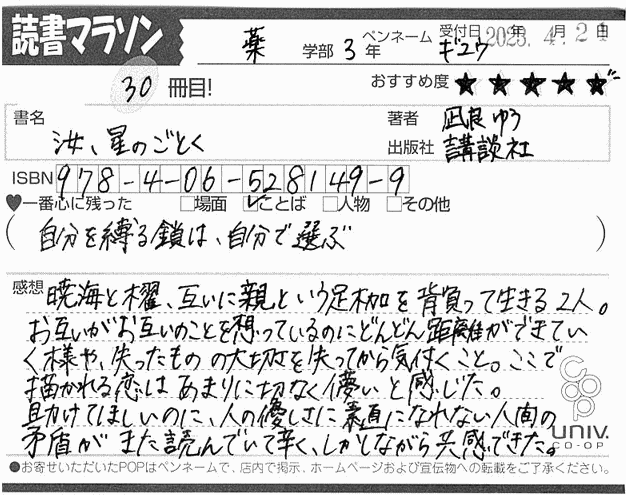 読書マラソン
薬 学部 3 年 ペンネーム ギユウ 受付日 2025年 4月 21日
30 冊目!
おすすめ度 ★★★★★
書名 汝、星のごとく
著者 凪良ゆう
出版社 講談社
ISBN 978-4-06-528149-9
♥一番心に残った □場面 ☑ことば □人物 □その他
(自分を縛る鎖は、自分で選ぶ)
感想 暁海と櫂、互いに親という足枷を背負って生きる2人。
お互いがお互いのことを想っているのにどんどん距離ができてい
く様や、失ったものの大切さを失ってから気付くこと。ここで
描かれる恋はあまりに切なく儚いと感じた。
助けてほしいのに、人の優しさに素直になれない人間の
矛盾がまた読んでいて辛く、しかしながら共感できた。
coop
UNIV.
CO-OP
●お寄せいただいたPOPはペンネームで、店内で掲示、ホームページおよび宣伝物への転載をご了承ください。